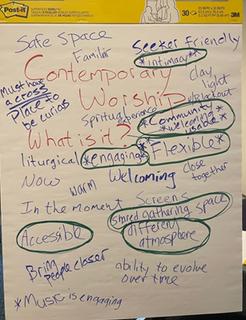 Post-it
SUPER STICKY
30
3M
Safe Space
Familiar
Seeker friendly
*intimacy*
Contemporary
Must have
a cross
Place to
be curious
day
light
Worship
What is it?
*Community*
*welcome
Flexible*
liturgical
*engaging*
Now
warm
Welcoming
close
together
In the moment
Screens
shared gathering space
Accessible
different
atmosphere
Bring
people closer
ability to evolve
over time
*Music is engaging